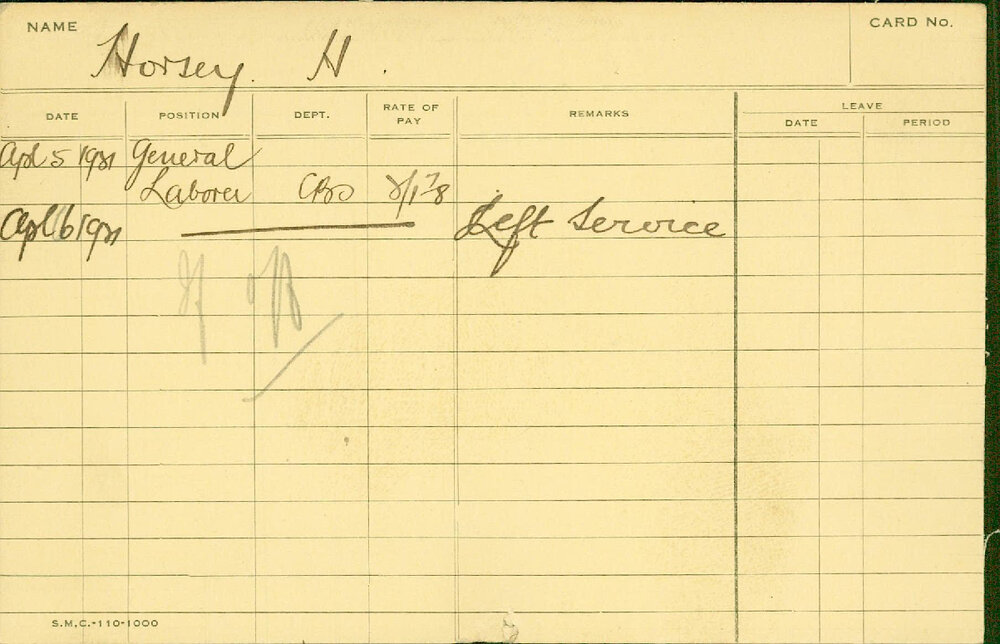 NAME Horsey. H. CARD No.
DATE POSITION DEPT. RATE OF PAY REMARKS LEAVE
DATE PERIOD
Apl 5 1921 General
Laborer CBO
Apl 6 1921 Left Service
S.M.C.-110-1000